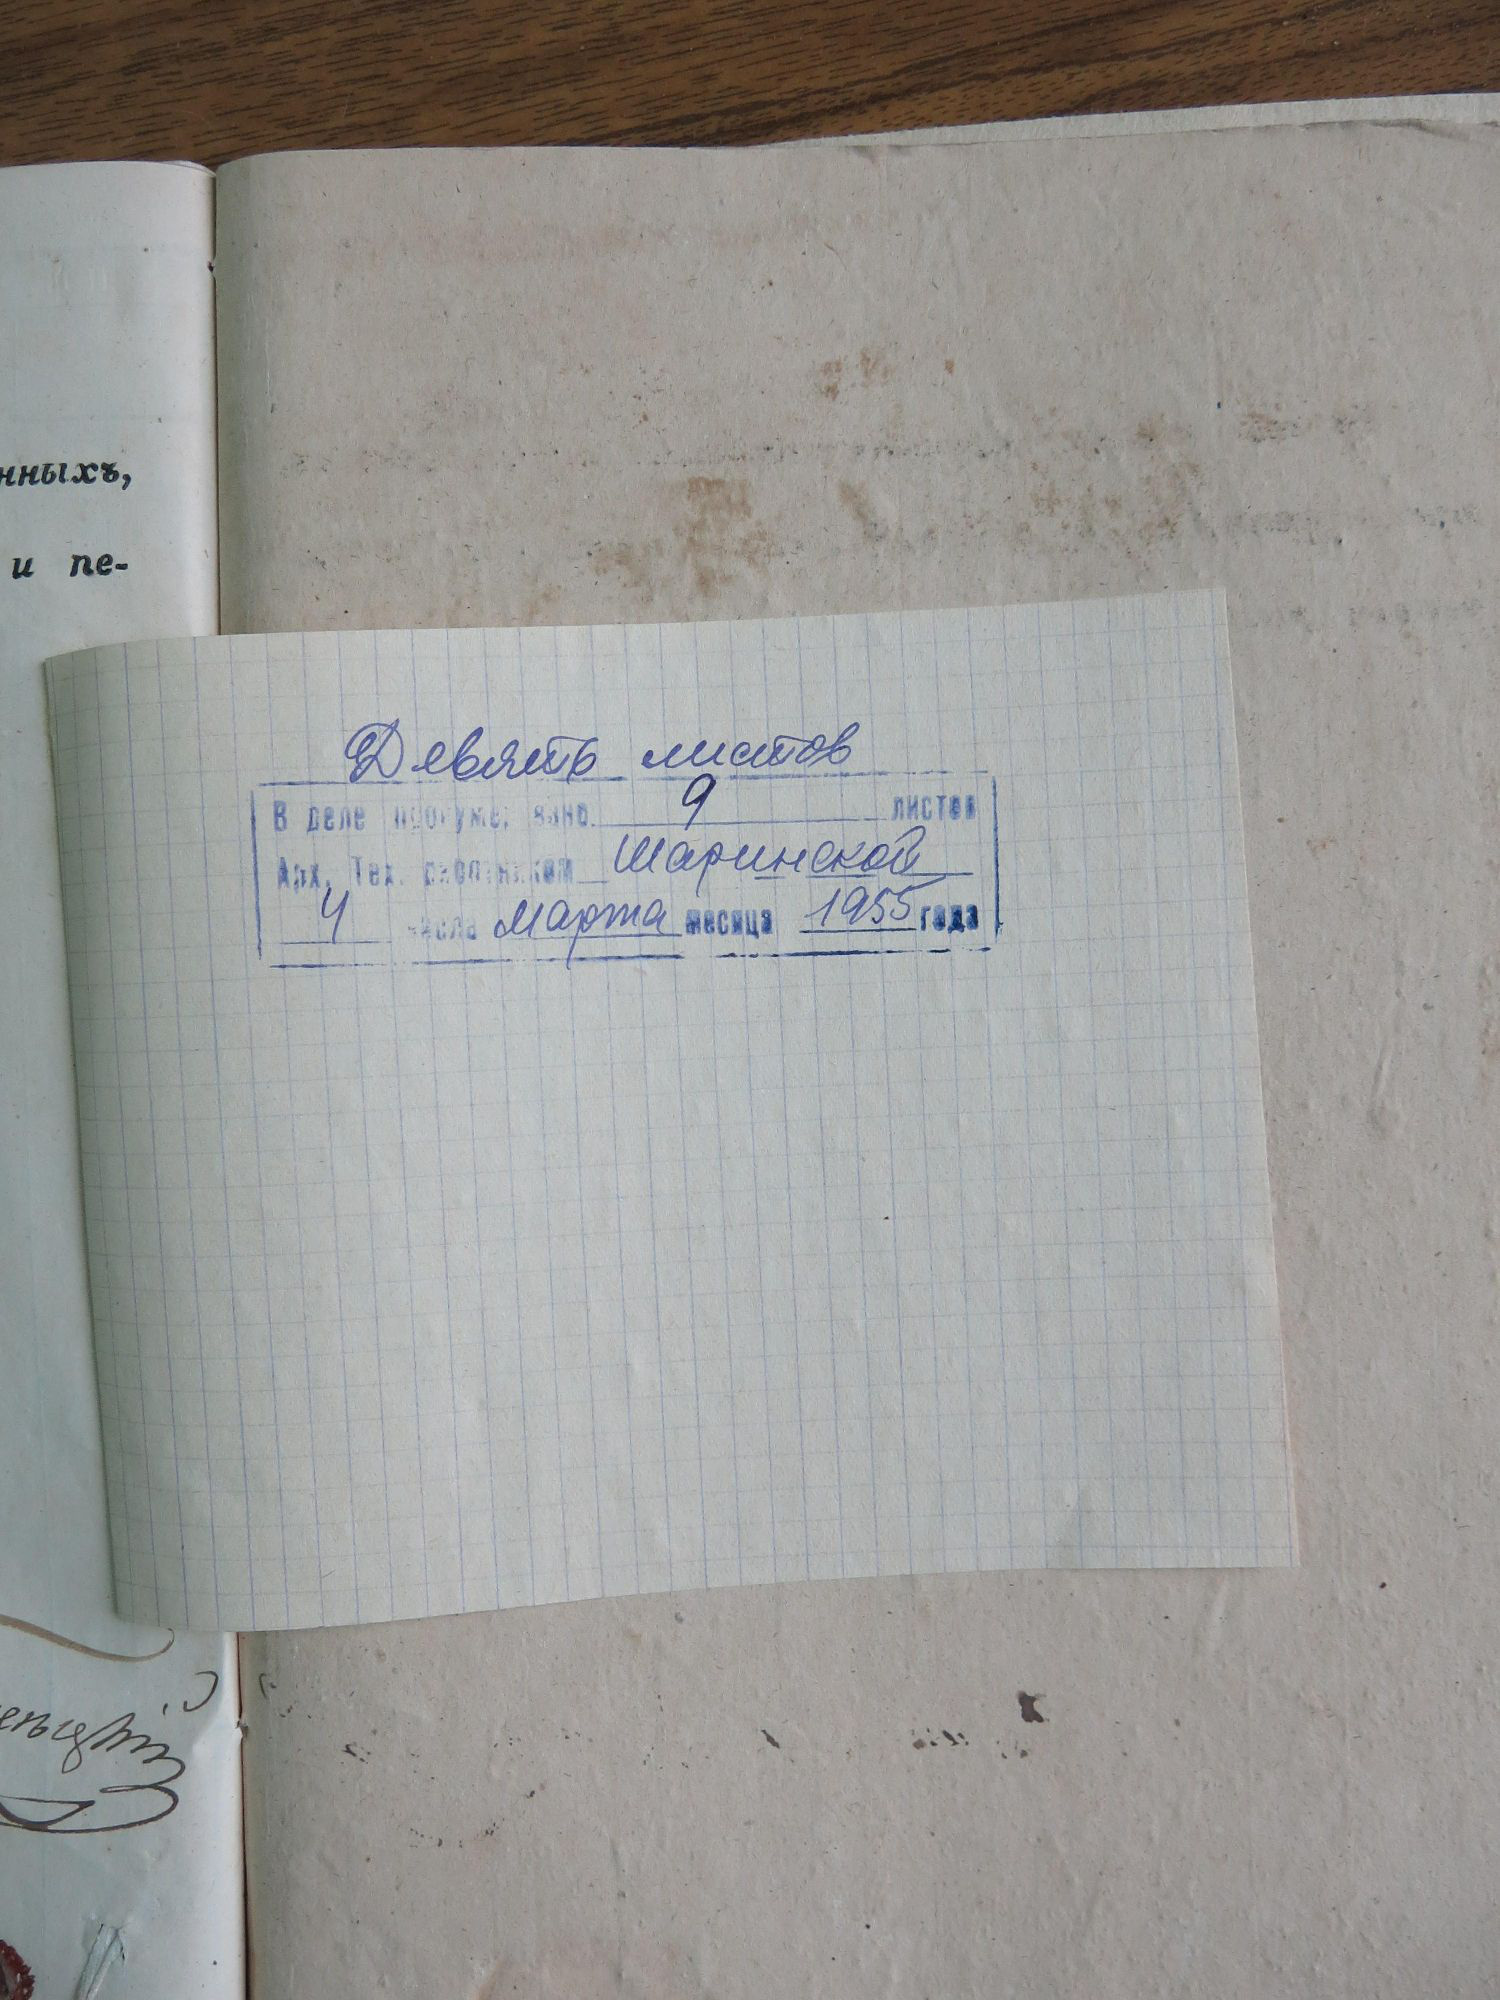 нныхъ,
и пе-
Девять листов
В деле пронумеровано 9 листов
Арх. Тех. работником Шаринской
4 числа марта месяца 1955 года